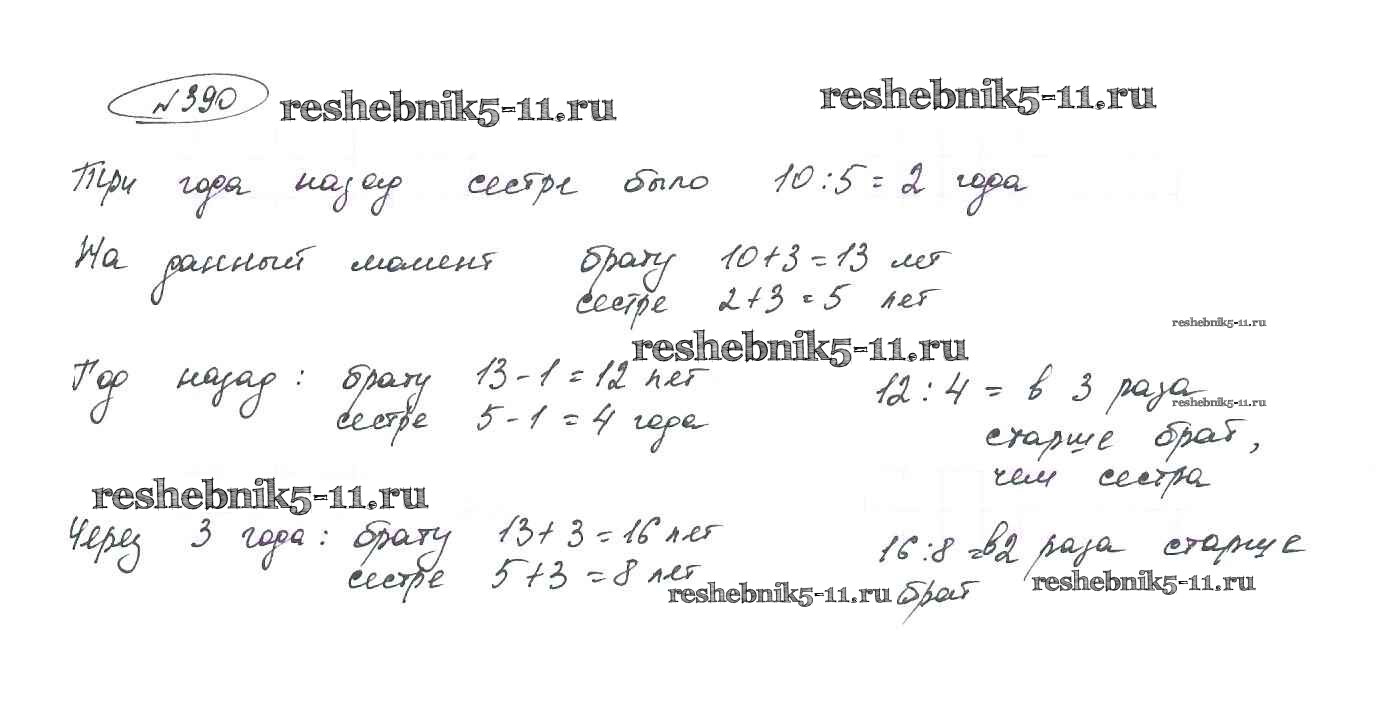 №390 reshebnik5-11.ru reshebnik5-11.ru
Три года назад сестре было 10:5=2 года
На данный момент брату 10+3=13 лет
сестре 2+3=5 лет
reshebnik5-11.ru
reshebnik5-11.ru
Год назад: брату 13-1=12 лет 12:4= в 3 раза
reshebnik5-11.ru
сестре 5-1=4 года старше брат,
чем сестра
reshebnik5-11.ru
Через 3 года: брату 13+3=16 лет 16:8=в2 раза старше
сестре 5+3=8 лет reshebnik5-11.ru брат reshebnik5-11.ru